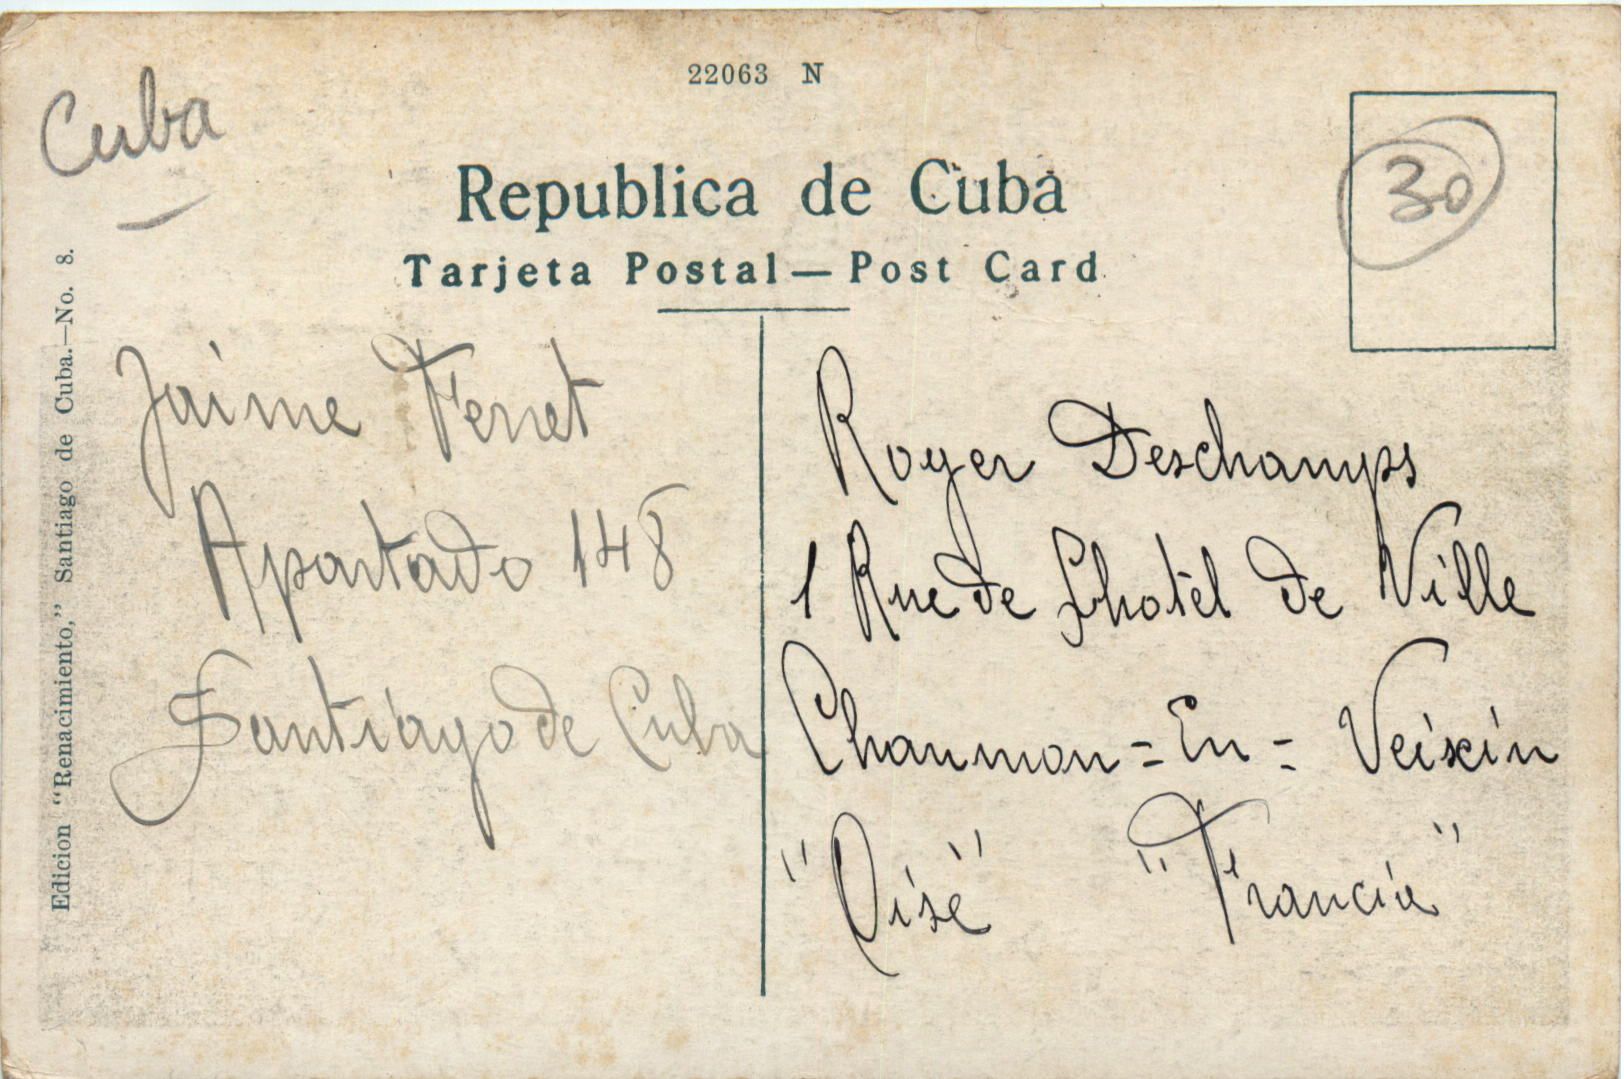 22063 N
Cuba
30
Republica de Cuba
Tarjeta Postal — Post Card
Edicion "Renacimiento," Santiago de Cuba.—No. 8.
Jaime Ferret
Apartado 148
Santiago de Cuba
Roger Deschamps
1 Rue de Lhotel de Ville
Chaumon = En = Veixin
"Oise" "Francia"